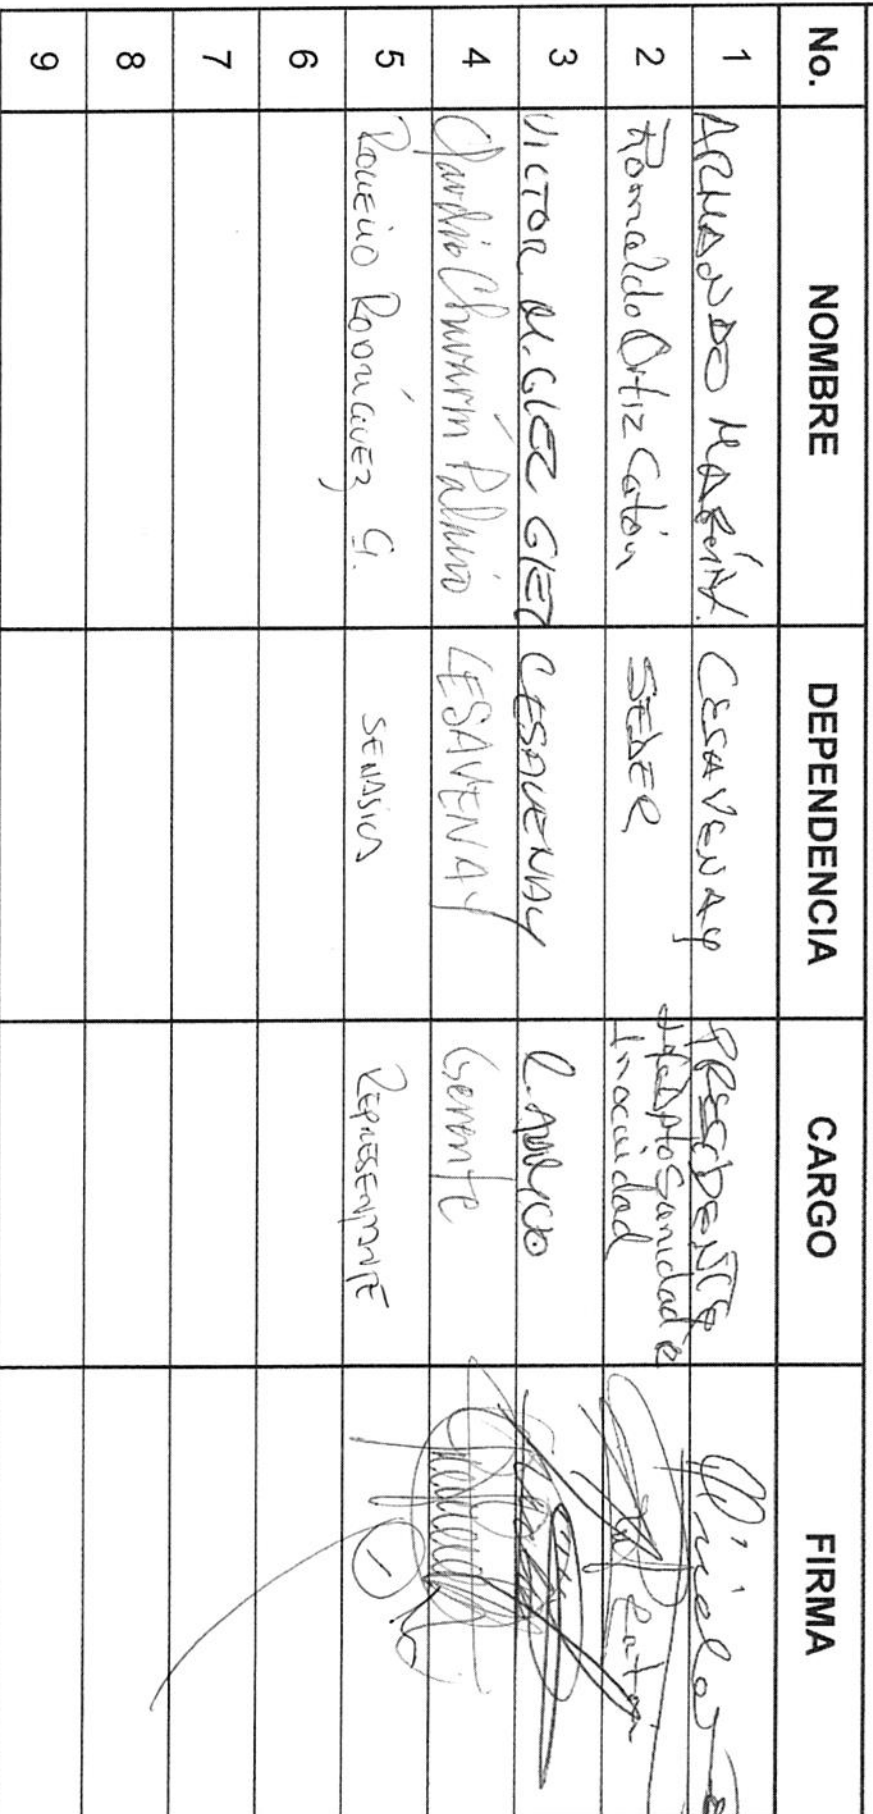 No. NOMBRE DEPENDENCIA CARGO FIRMA
1 ARMANDO MARÍN CESAVENAY PRESIDENTE
2 Romaldo Ortiz Catón SEDER Jefe Dpto Sanidad e
Inocuidad
3 VICTOR M. GLEZ GLEZ CESAVENAY
4 Claudio Chavarín Palmio CESAVENAY Gerente
5 ROGELIO RODRÍGUEZ G. SENASICA REPRESENTANTE
6
7
8
9